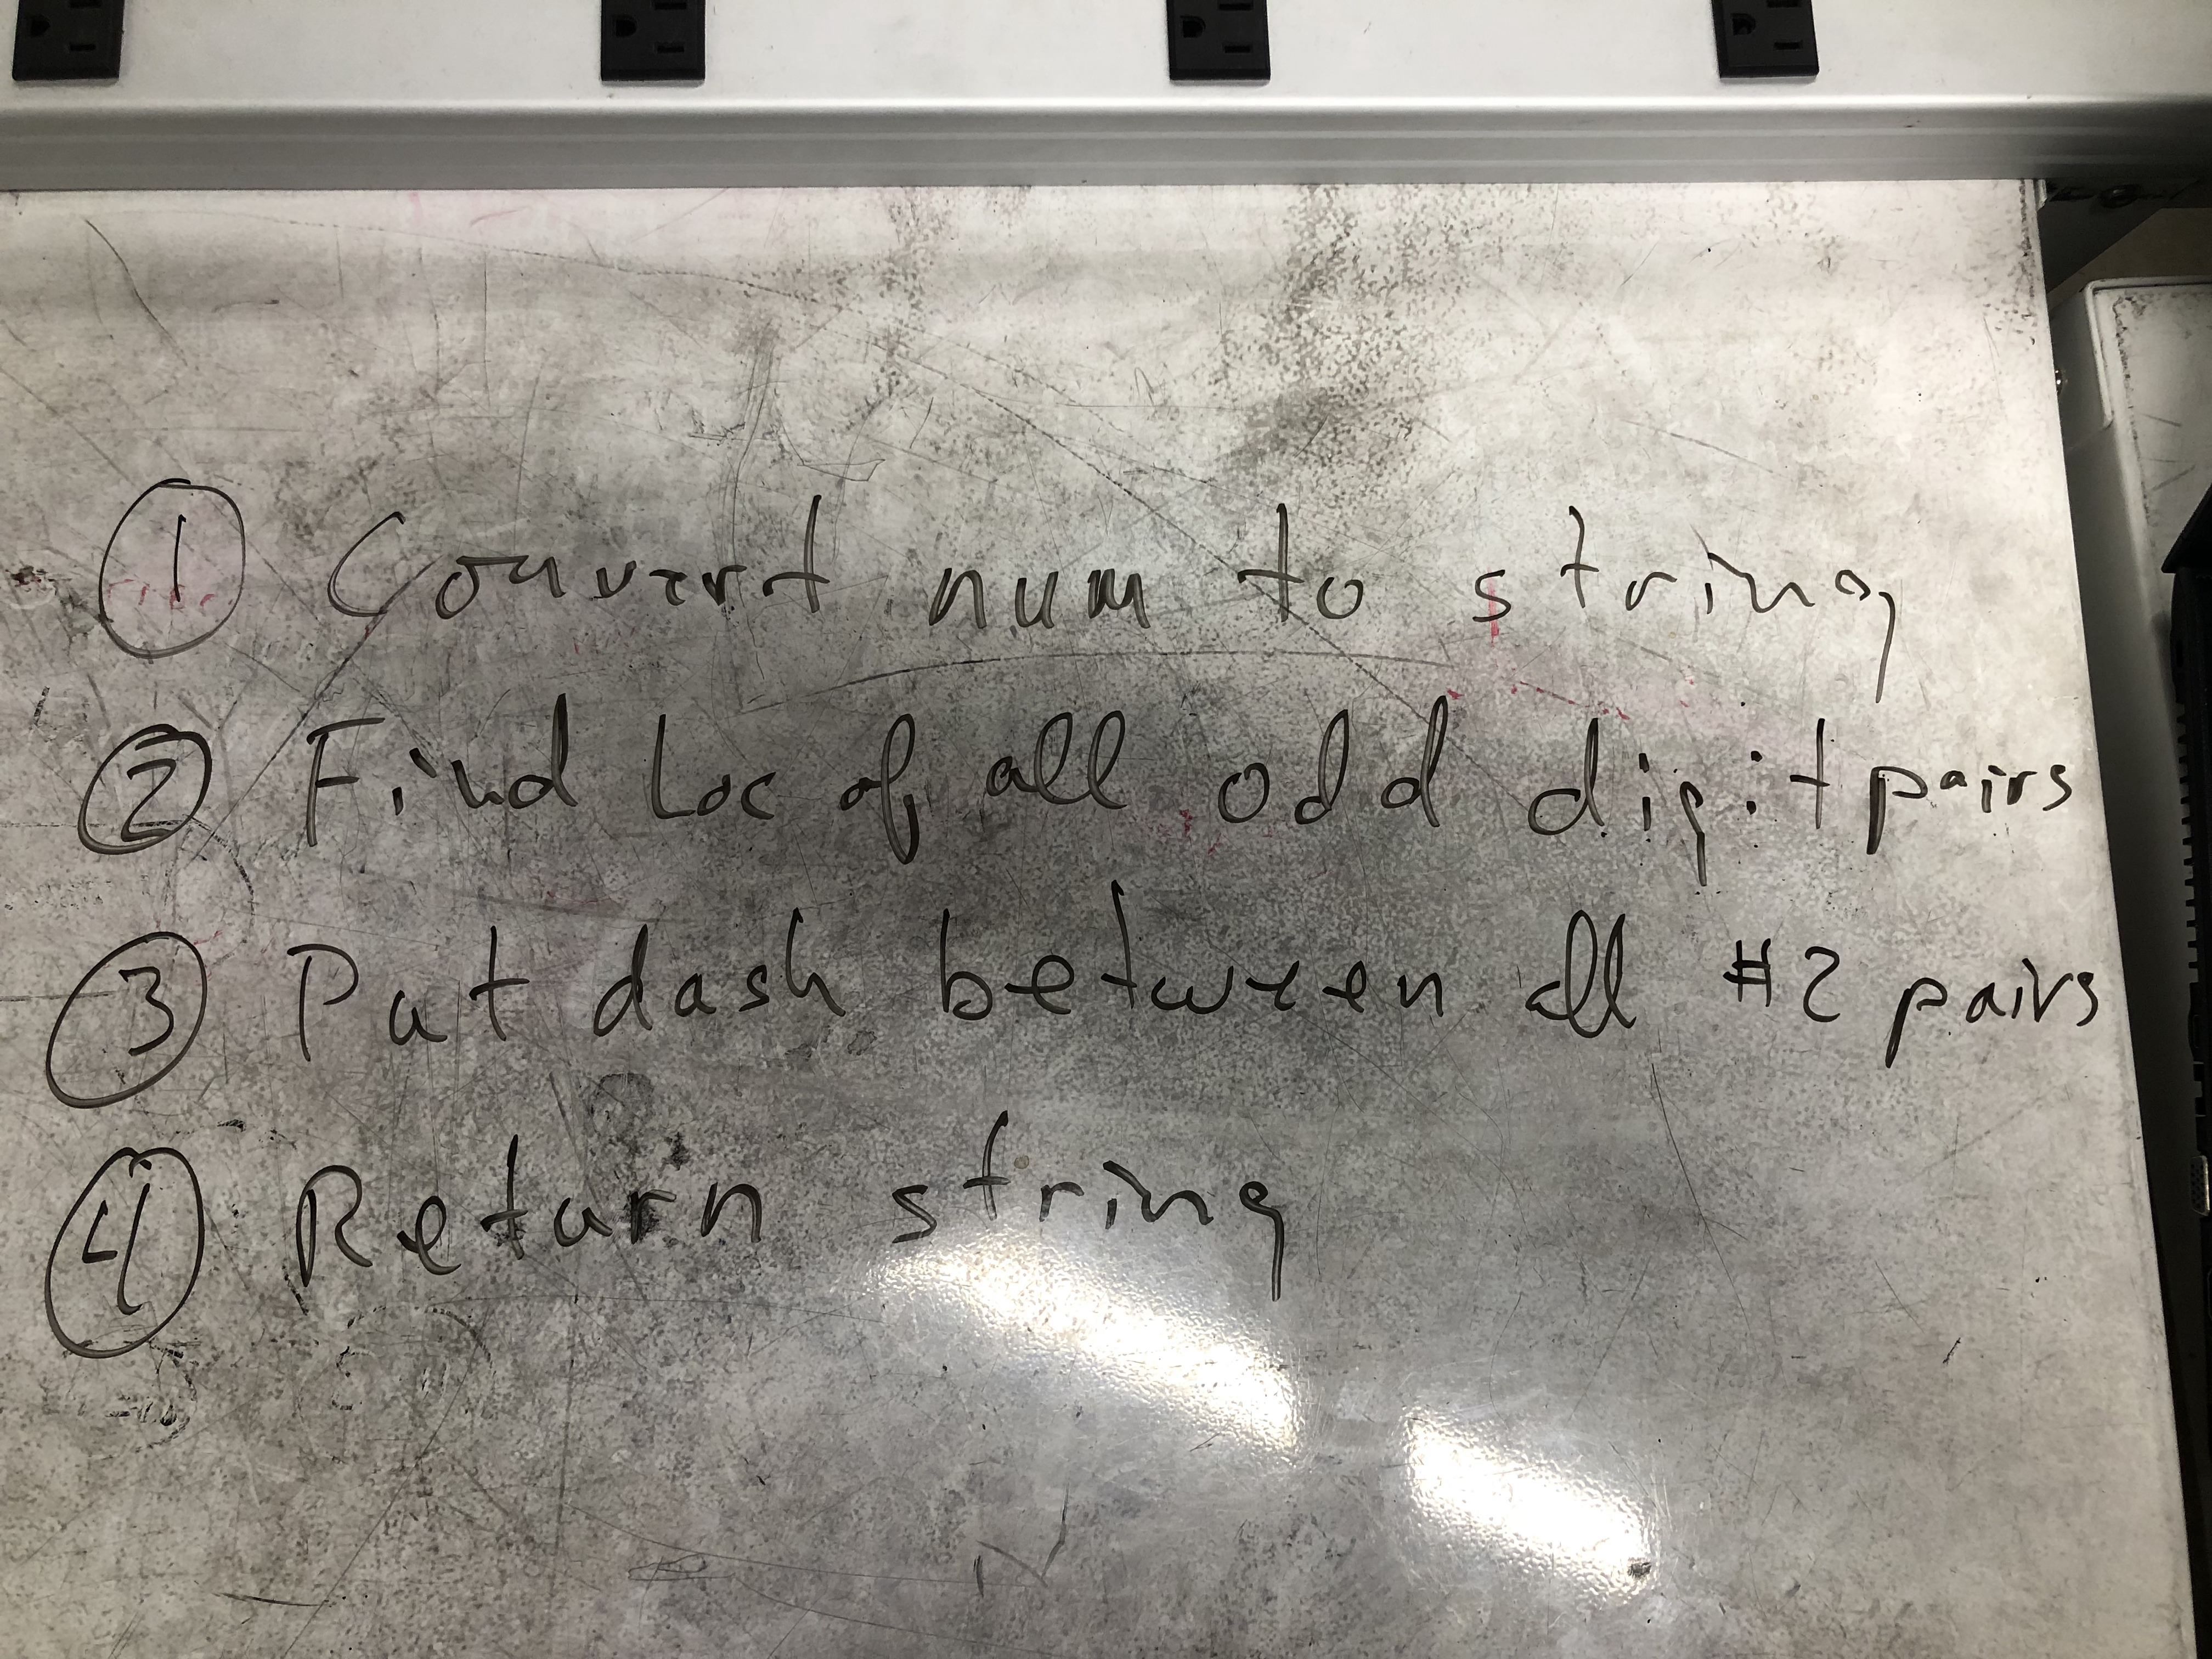 ① Convert num to string
② Find Loc of all odd digit pairs
③ Put dash between all #2 pairs
④ Return string